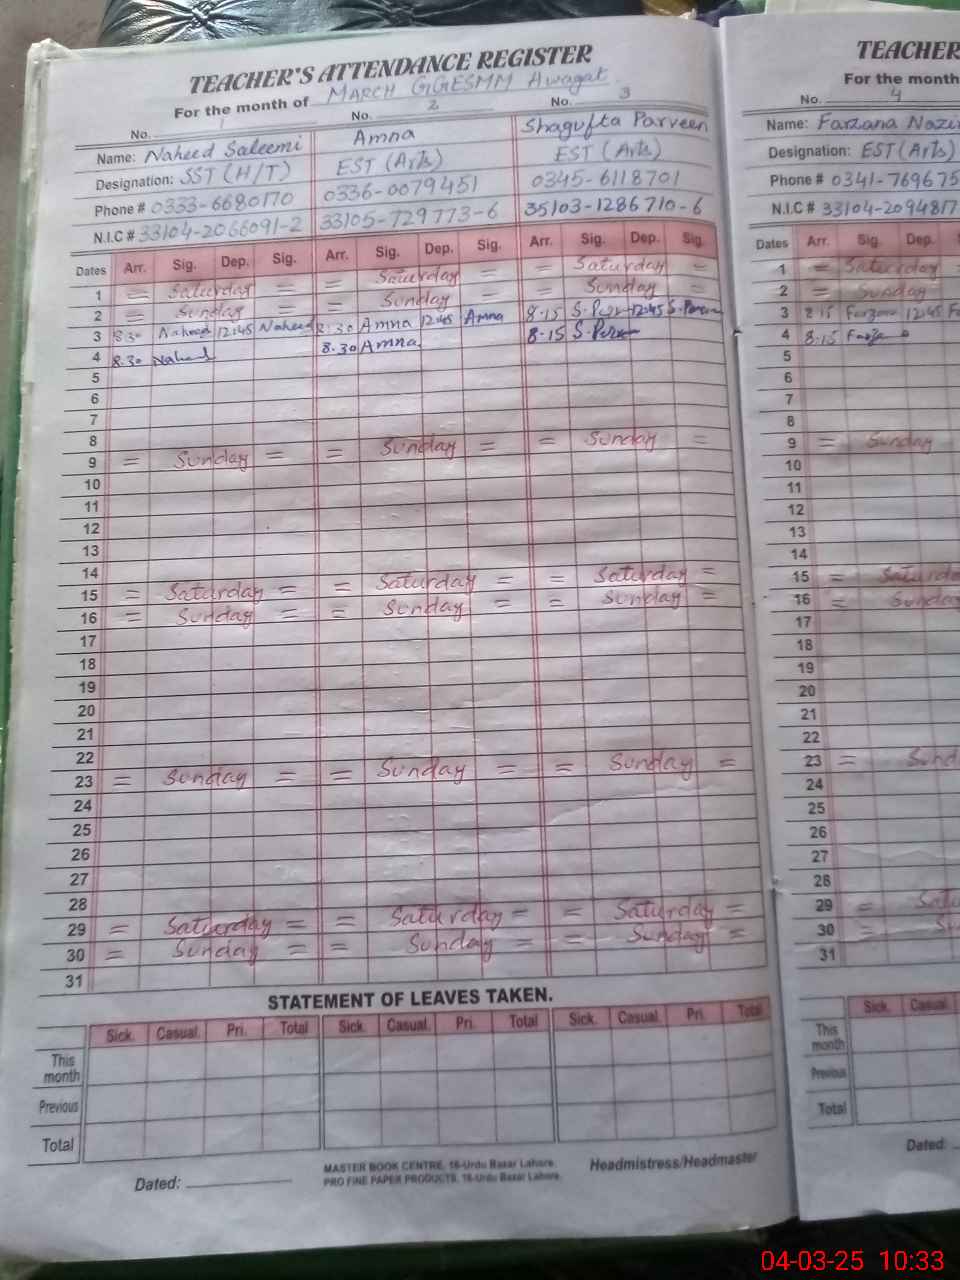 TEACHER'S ATTENDANCE REGISTER
For the month of MARCH GGESMM Awagat
No. 1 No. 2 No. 3
Name: Naheed Saleemi Amna Shagufta Parveen
Designation: SST (H/T) EST (Arts) EST (Arts)
Phone # 0333-6680170 0336-0079451 0345-6118701
N.I.C # 33104-2066091-2 33105-729773-6 35103-1286710-6
Dates Arr. Sig. Dep. Sig. Arr. Sig. Dep. Sig. Arr. Sig. Dep. Sig.
1 = Saturday = = Saturday = = Saturday =
2 = Sunday = = Sunday = = Sunday =
3 8:30 Naheed 12:45 Naheed 8:30 Amna 12:45 Amna 8-15 S-Parveen 12:45 S-Parveen
4 8.30 Naheed 8.30 Amna 8-15 S-Parveen
5
6
7
8
9 = Sunday = = Sunday = = Sunday =
10
11
12
13
14
15 = Saturday = = Saturday = = Saturday =
16 = Sunday = = Sunday = = Sunday =
17
18
19
20
21
22
23 = Sunday = = Sunday = = Sunday =
24
25
26
27
28
29 = Saturday = = Saturday = = Saturday =
30 = Sunday = = Sunday = = Sunday =
31
STATEMENT OF LEAVES TAKEN.
Sick. Casual. Pri. Total Sick. Casual. Pri. Total Sick. Casual. Pri. Total
This
month
Previous
Total
Dated:
MASTER BOOK CENTRE, 16-Urdu Bazar Lahore.
PRO FINE PAPER PRODUCTS, 16-Urdu Bazar Lahore.
Headmistress/Headmaster
TEACHER
For the month
No. 4
Name: Farzana Nazir
Designation: EST (Arts)
Phone # 0341-769675
N.I.C # 33104-2094817
Dates Arr. Sig. Dep. S
1 = Saturday =
2 = Sunday
3 8 15 Farzana 12:45 Fa
4 8.15 Farzana
5
6
7
8
9 = Sunday
10
11
12
13
14
15 = Saturda
16 = Sunday
17
18
19
20
21
22
23 = Sund
24
25
26
27
28
29 = Satu
30 = Su
31
Sick. Casual.
This
month
Previous
Total
Dated:
04-03-25 10:33